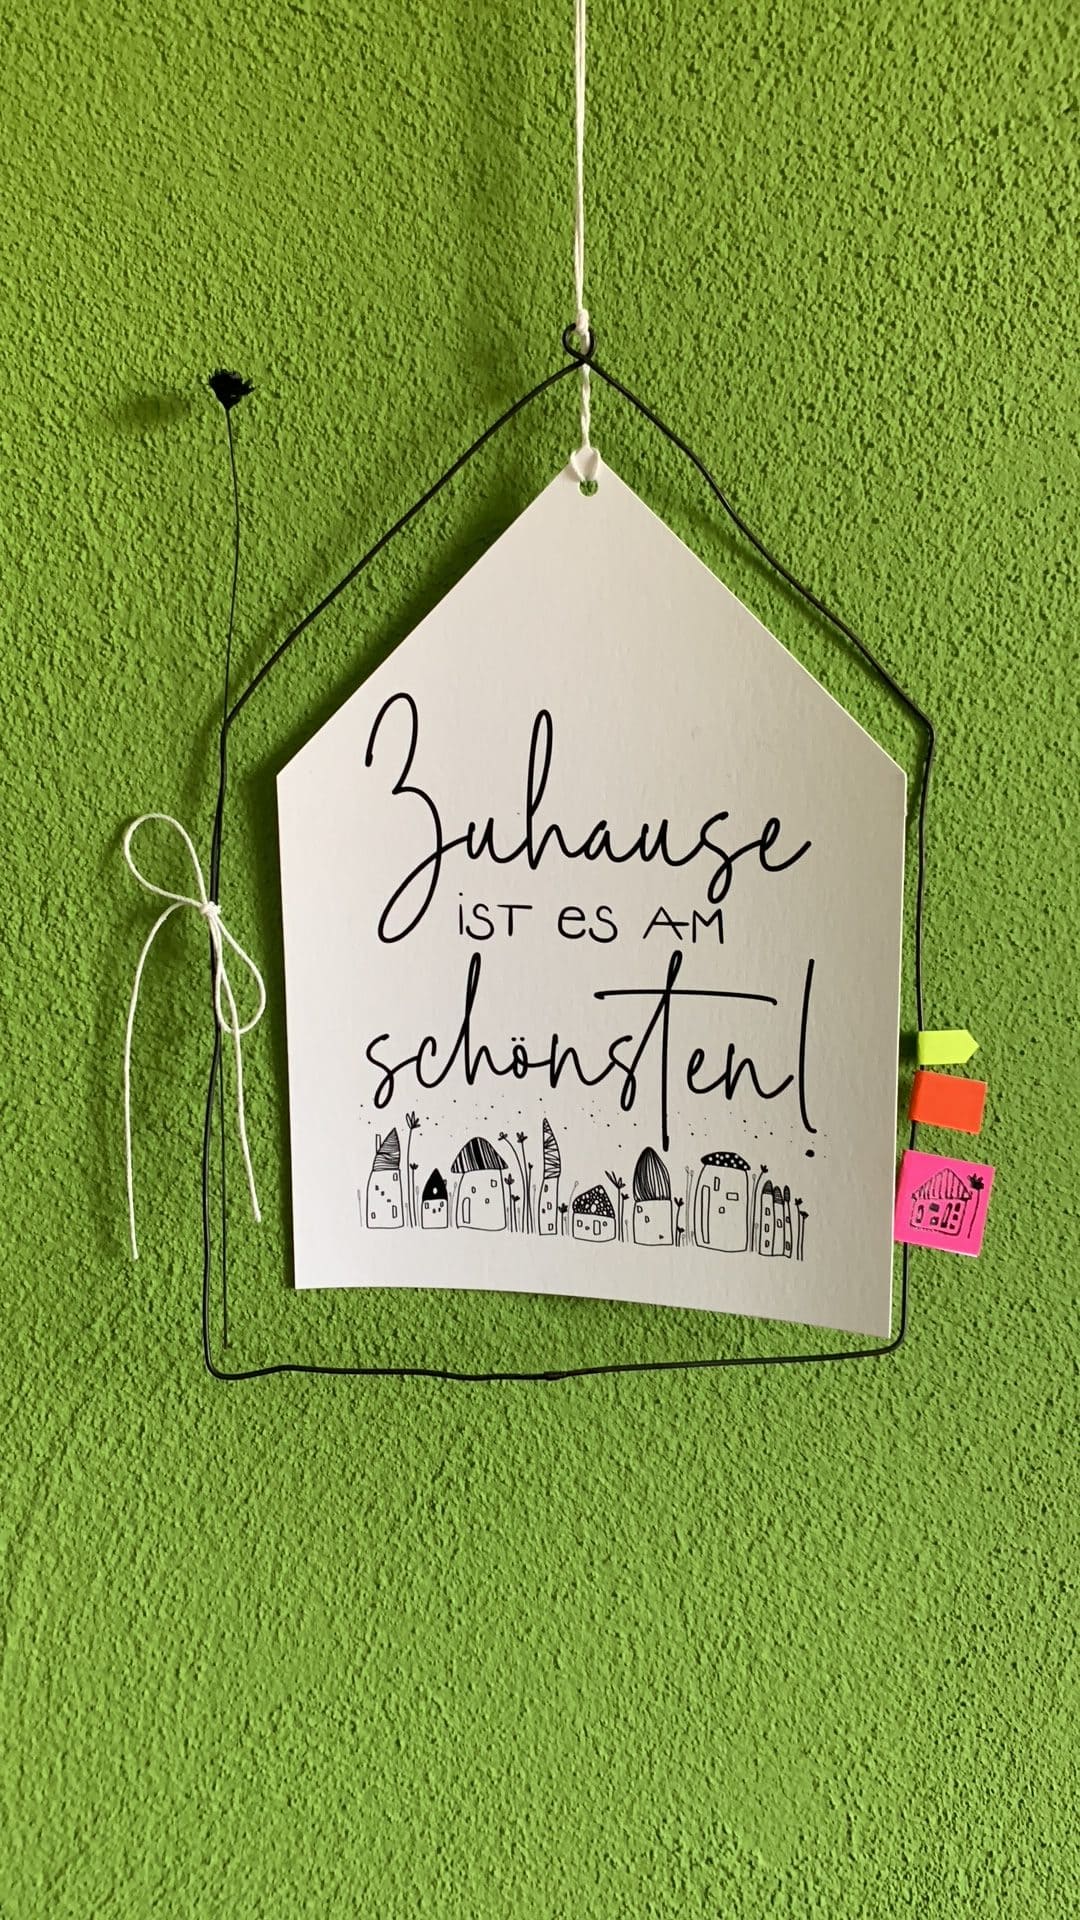 Zuhause
iST es AM
schönsten!